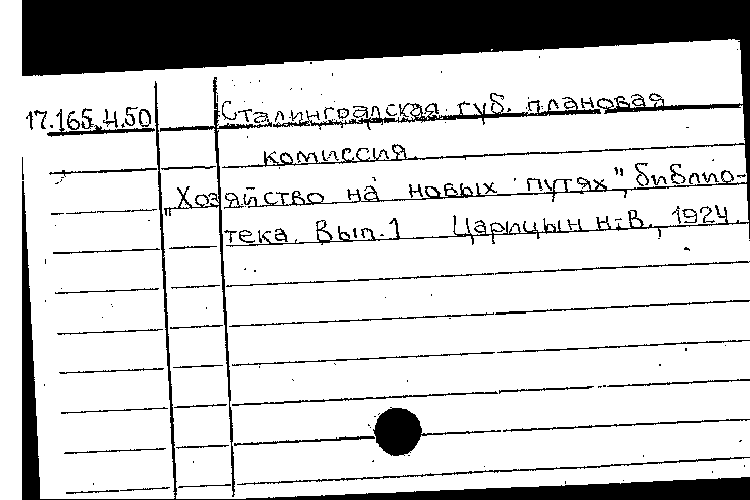 17.165.4.50 Сталинградская губ. плановая
комиссия.
„Хозяйство на новых путях", библио-
тека. Вып.1 Царицын н.В., 1924.